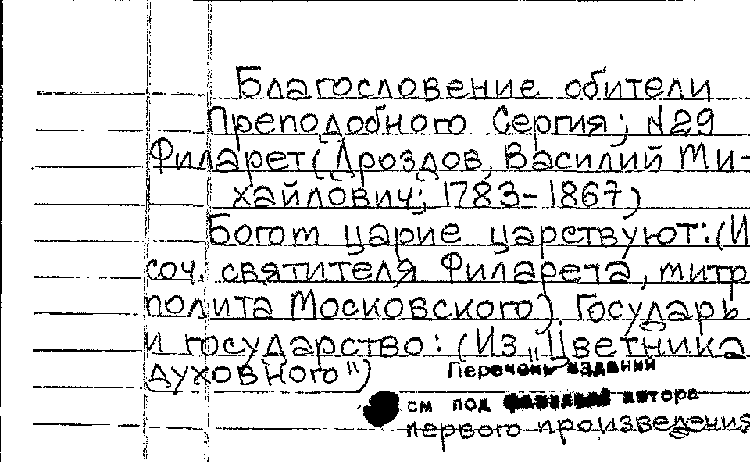 Благословение обители
Преподобного Сергия; №29
Филарет (Дроздов, Василий Ми-
хайлович; 1783-1867)
Богом царие царствуют: (И
соч. святителя Филарета, митр
полита Московского). Государь
и государство: (Из „Цветника
духовного")
Перечень изданий
см под автора
первого произведения